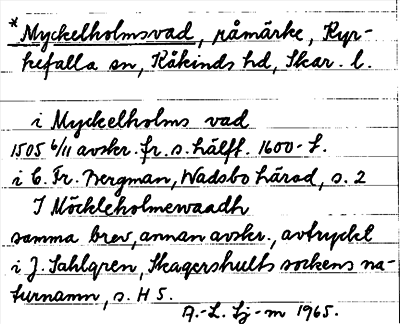 * Myckelholmsvad, råmärke, Kyr-
kefalla sn, Kåkinds hd, Skar. l.
i Myckelholms vad
1505 6/11 avskr. fr. s. hälft. 1600-t.
i C. Fr. Bergman, Wadsbo härad, s. 2
I Möckleholmewaadh
samma brev, annan avskr., avtryckt
i J. Sahlgren, Skagershults sockens na-
turnamn, s. H 5.
A.-L. Lj-m 1965.